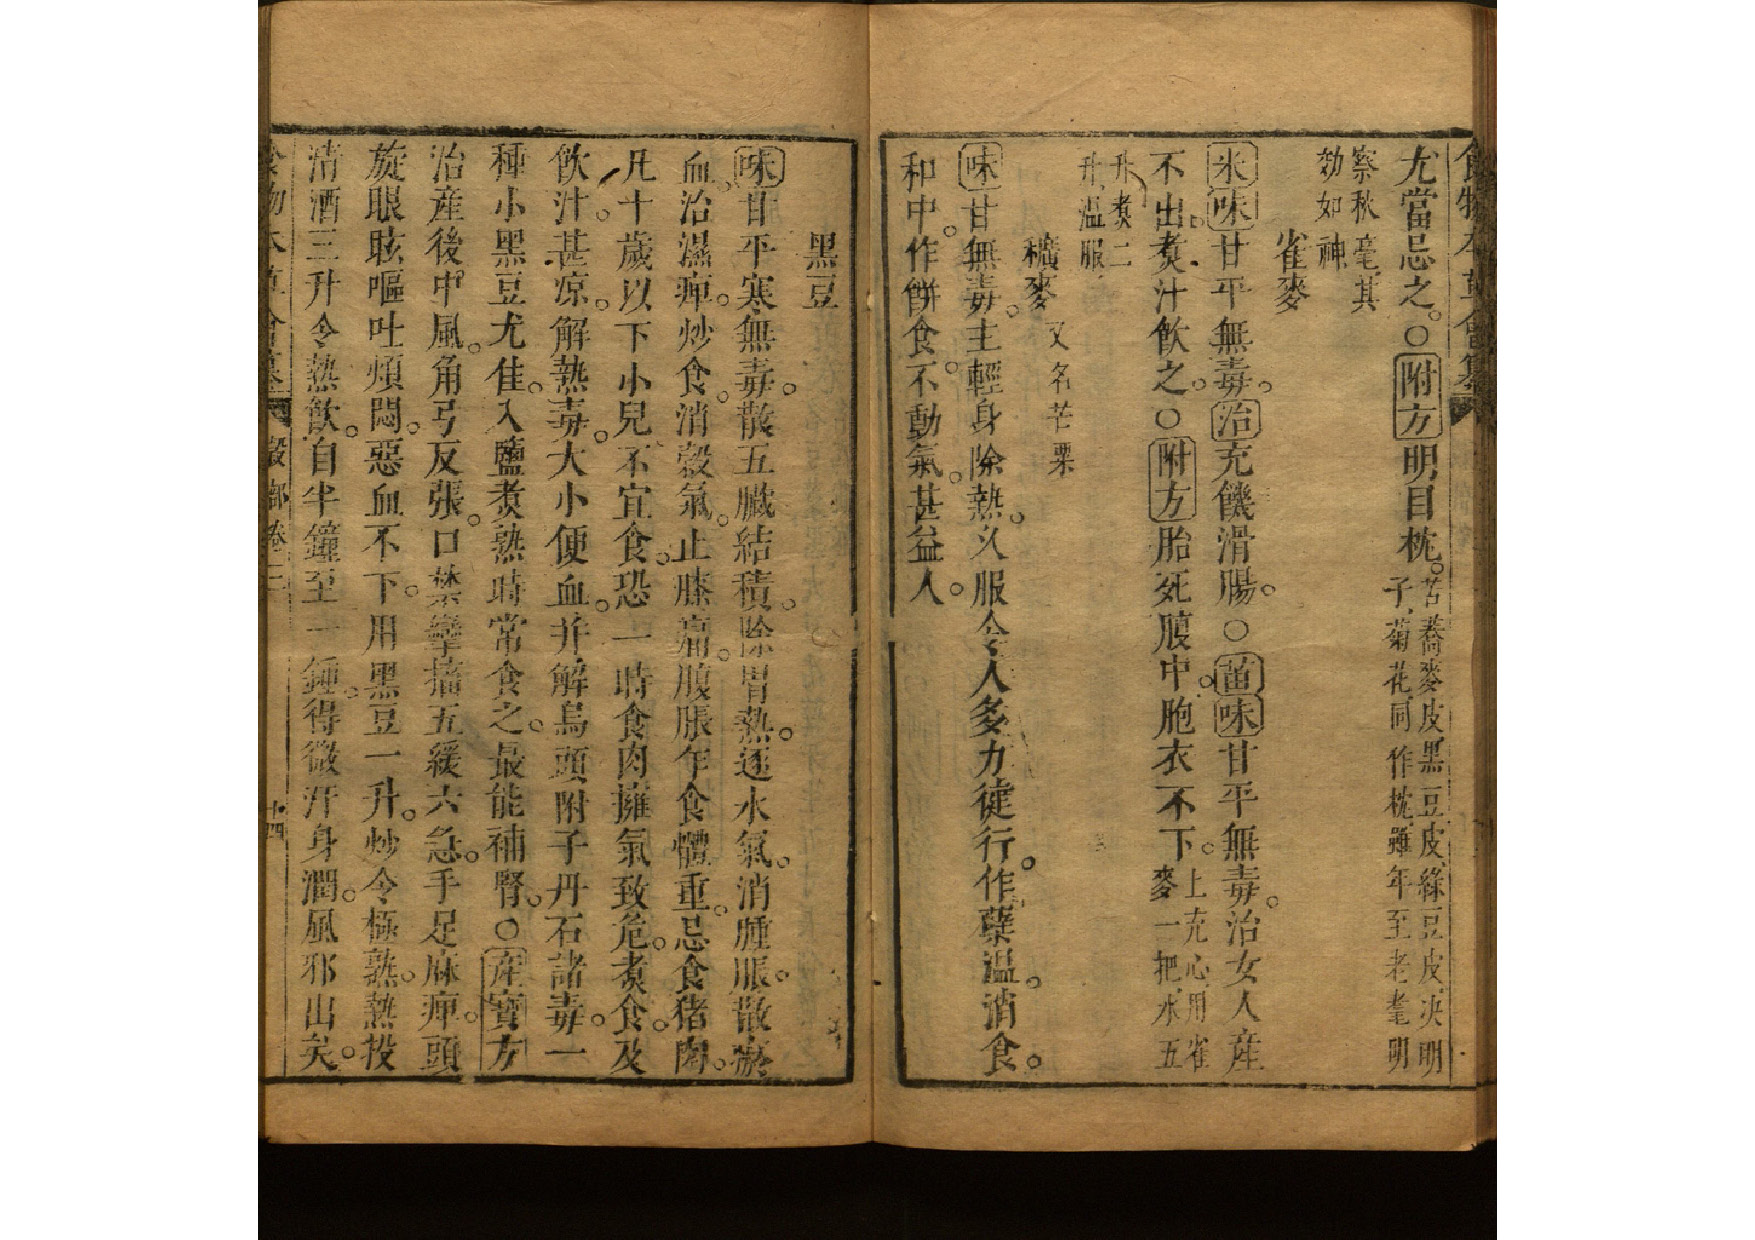 食物本草會纂
尤當忌之。○附方明目枕。苦蕎麥皮黑豆皮綠豆皮決明
子菊花同作枕雖年至老耄明
察秋毫其
効如神
雀麥
米味甘平無毒。治充饑滑腸。○苗味甘平無毒。治女人産
不出。煮汁飲之。○附方胎死腹中。胞衣不下。上充心用雀
麥一把水五
升煮二
升溫服
穬麥 又名芒粟
味甘無毒。主輕身除熱。久服令人多力徤行。作蘖溫。消食。
和中。作餅食。不動氣。甚益人。
黑豆
味甘平寒無毒。散五臟結積。除胃熱。逐水氣。消腫脹。散瘀
血。治濕痺。炒食。消穀氣。止膝痛。腹脹乍食體重。忌食猪肉。
凡十歲以下小兒不宜食。恐一時食肉擁氣致危。煮食。及
飲汁。甚凉。解熱毒。大小便血。并解烏頭附子丹石諸毒。一
種小黑豆尤佳。入鹽煮熟時常食之。最能補腎。○産寶方
治産後中風。角弓反張。口禁攣搐五緩六急。手足麻痺。頭
旋眼眩嘔吐煩悶。惡血不下。用黑豆一升。炒令極熟。熱投
清酒三升令熱飲。自半鐘至一鍾。得微汗身潤。風邪出矣。
食物本草會纂 穀部卷二 十四